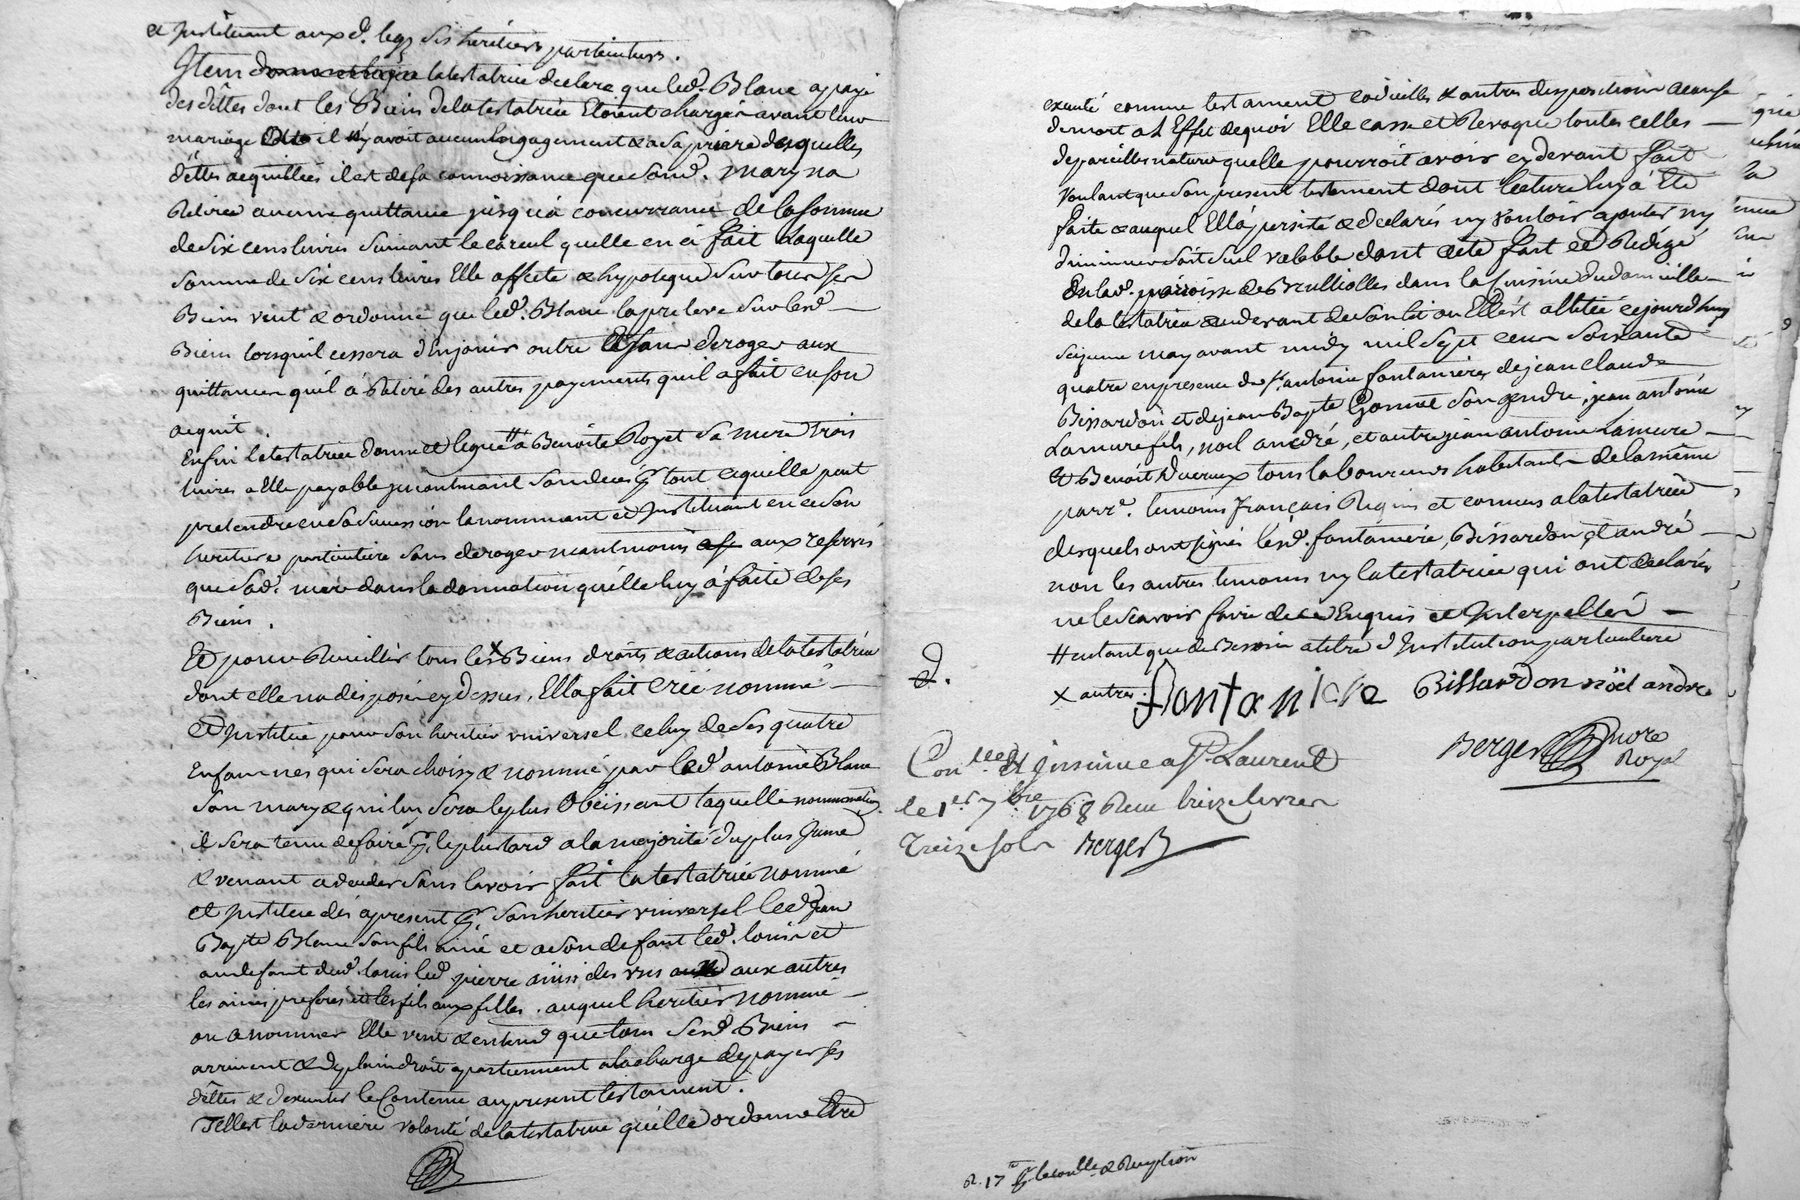 et instituant auxd. legs ses heritiers particuliers.
Item donne et legue la testatrice declare que led. Blanc a payé
des dêttes dont les Biens de la testatrice Etoient chargés avant leur
mariage il ny avoit aucun Engagement & a sa priere desquelles
dêttes acquittées il est de sa connoissance que sond. mary na
Retirée aucune quittance jusqu'à concurrance de la somme
de six cens livres suivant le calcul quelle en à fait Laquelle
somme de six cens livres Elle affecte & hypoteque sur tous ses
Biens veut & ordonne que led. Blanc la preleve sur lesd.
Biens lorsquil cessera d'En jouir outre & sans deroger aux
quittances quil à Retiré des autres payements quil a fait en son
acquit.
Enfin la testatrice donne et legue # à Benoite Royet sa mere trois
livres a Elle payable incontinant son deces pr. tout ce quelle peut
pretendre en sa succession la nommant et Instituant en ce son
heritiere particuliere sans deroger neantmoins aux reservés
que sad. mere dans la donnation qu'elle luy à faite de ses
Biens.
Et pour Recuillir tous les x Biens droits & actions de la testatrice
dont elle na disposé cy dessus, Ella fait créé nommé
Et Institue pour son heritier universel celuy de ses quatre
Enfans nés qui sera choisy & nommé par led. antoine Blanc
son mary & qui luy sera le plus Obeissant laquelle nommination
il sera tenu de faire pr. le plus tard a la majorité du plus Jeune
& venant a deceder sans lavoir fait la testatrice nomme
et Institue dés apresent pr. son heritier universel led. Jean
Bapte. Blanc son fils ainé et a son defaut led. louis et
au defaut dud. louis led. pierre ainsi des uns aux autres
les ainés preferés et les fils aux filles. auquel heritier nommé
ou a nommer Elle veut & entend que tous sesd. Biens
arrivent & de plain droit apartiennent a la charge de payer ses
dêttes & d'executer le Contenu au present testament.
Telle est la derniere volonté de la testatrice qu'elle ordonne Etre
executé comme testament codicilles & autres dispositions a cause
de mort a L'Effet de quoi Elle casse et Revoque toutes celles
de pareilles nature quelle pourroit avoir cy devant fait
Voulant que son present testament dont lecture luy à Eté
faite & auquel Ella persisté & declarés ny vouloir ajouter ny
diminuer soit seul valable dont acte fait et Redigé
En lad. parroisse de Brulliolles dans la Cuisine du domicille
de la testatrice au devant de son lit ou Elle est allitée cejourd'huy
seizieme may avant midy mil sept cens soixante
quatre en presence de sr. antoine fontaniere, de jean claude
Bissardon et de jean Bapte. Gonnet son gendre, jean antoine
Lamure fils, noel andré, et autre jean antoine Lamure
Et Benoit Ducreux tous laboureurs habitants de la même
parre. temoins français Requis et connus a la testatrice
desquels ont signés lesd. fontaniere, Bissardon et andré
non les autres temoins ny la testatrice qui ont declarés
ne le scavoir faire de ce Enquis et Interpellés
# entant que de Besoin a titre d'Institution particuliere
x autres.
fontaniere Bissardon nöel andre
Berger nore Royal
Conllé et insinué a St. Laurent
le 1er 7bre 1768 Reçu treize livres
treize sols Berger